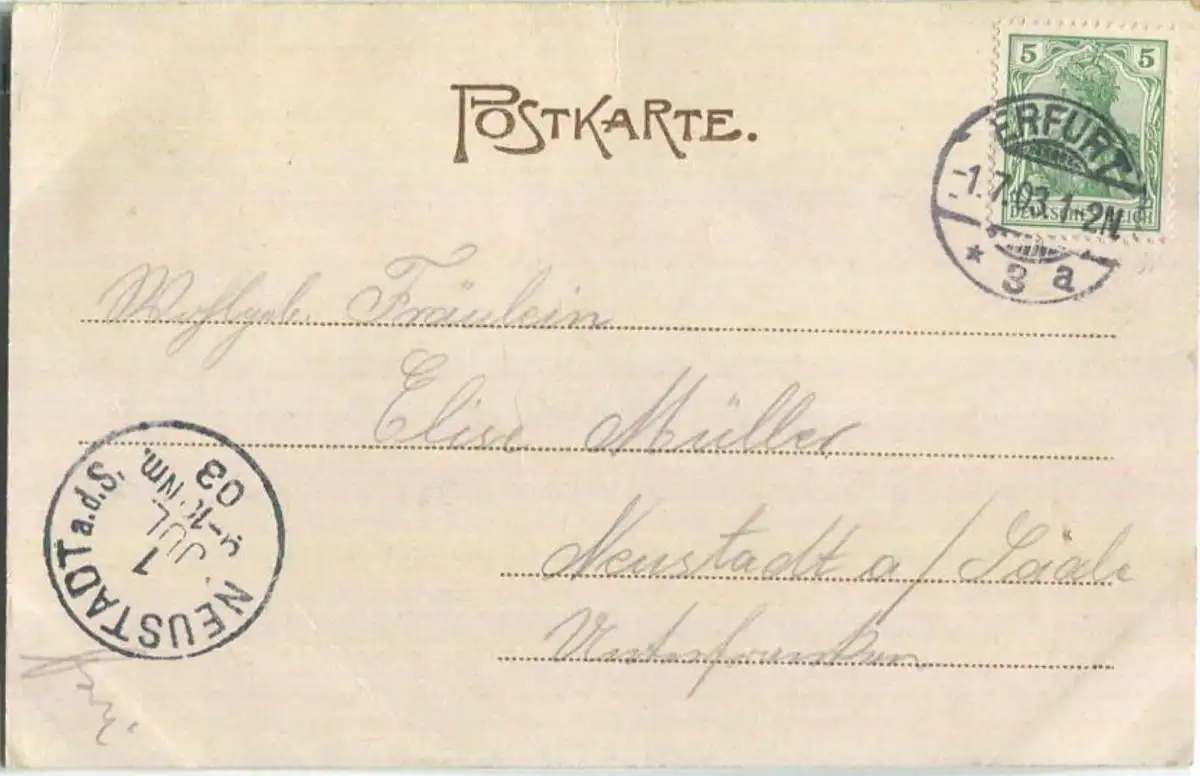 POSTKARTE.
5 5
DEUTSCHES REICH
ERFURT
-1.7.03.1-2N.
* 3 a
Wohlgeb. Fräulein
Elise Müller
Neustadt a/Saale
Unterfranken
NEUSTADT a.d.S.
1
JUL.
9-10 Nm.
03